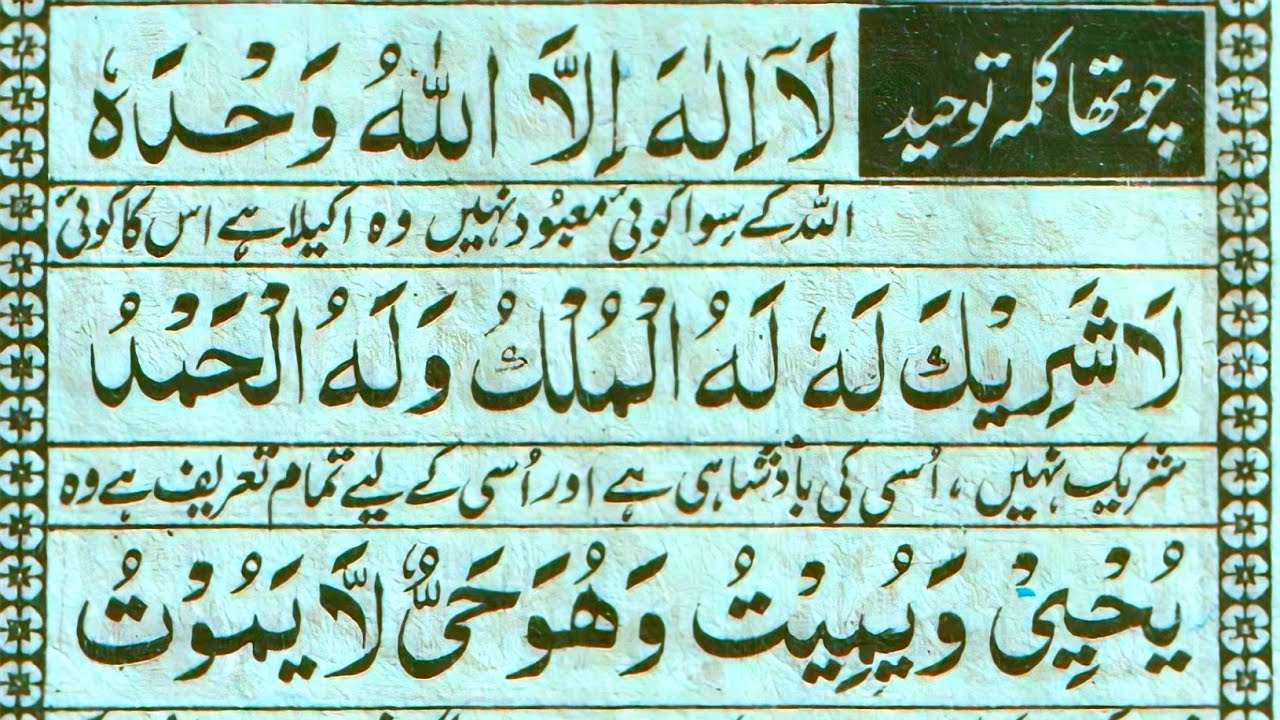 چوتھا کلمہ توحید
لَآ اِلٰهَ اِلَّا اللّٰهُ وَحْدَهٗ
اللہ کے سِوا کوئی معبُود نہیں وہ اکیلا ہے اس کا کوئی
لَا شَرِيْكَ لَهٗ لَهُ الْمُلْكُ وَلَهُ الْحَمْدُ
شریک نہیں ، اُسی کی بادشاہی ہے اور اُسی کے لیے تمام تعریف ہے وہ
يُحْيِيْ وَيُمِيْتُ وَهُوَ حَيٌّ لَّا يَمُوْتُ